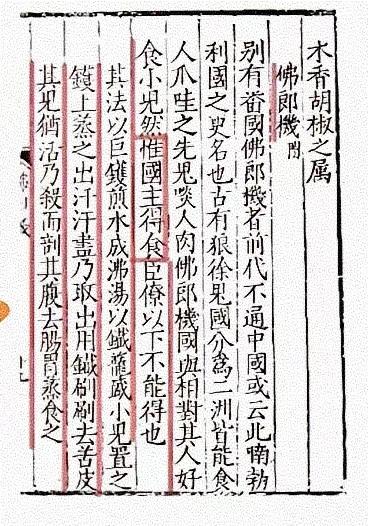 木香胡椒之属
佛郎機
别有番國佛郎機者前代不通中國或云此喃勃
利國之更名也古有狼徐鬼國分爲二洲皆能食
人爪哇之先鬼啖人肉佛郎機國與相對其人好
食小兒然惟國主得食臣僚以下不能得也
其法以巨鑊煎水成沸湯以鐵籠盛小兒置之
鑊上蒸之出汗汗盡乃取出用鐵刷刷去苦皮
其兒猶活乃殺而剖其腹去腸胃蒸食之